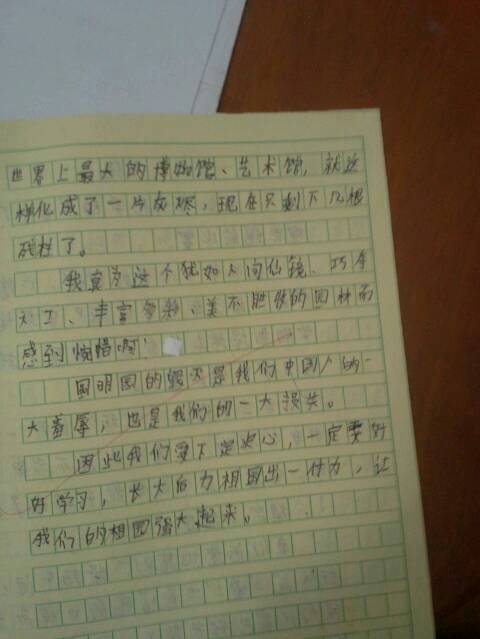 世界上最大的博物馆、艺术馆，就这
样化成了一片灰烬，现在只剩下几根
残柱了。
我真为这个犹如人间仙镜、巧夺
天工、丰富多彩、美不胜收的园林而
感到惋惜啊！
圆明园的毁灭是我们中国人的一
大羞辱，也是我们的一大损失。
因此我们要下定决心，一定要好
好学习，长大后为祖国出一份力，让
我们的祖国强大起来。